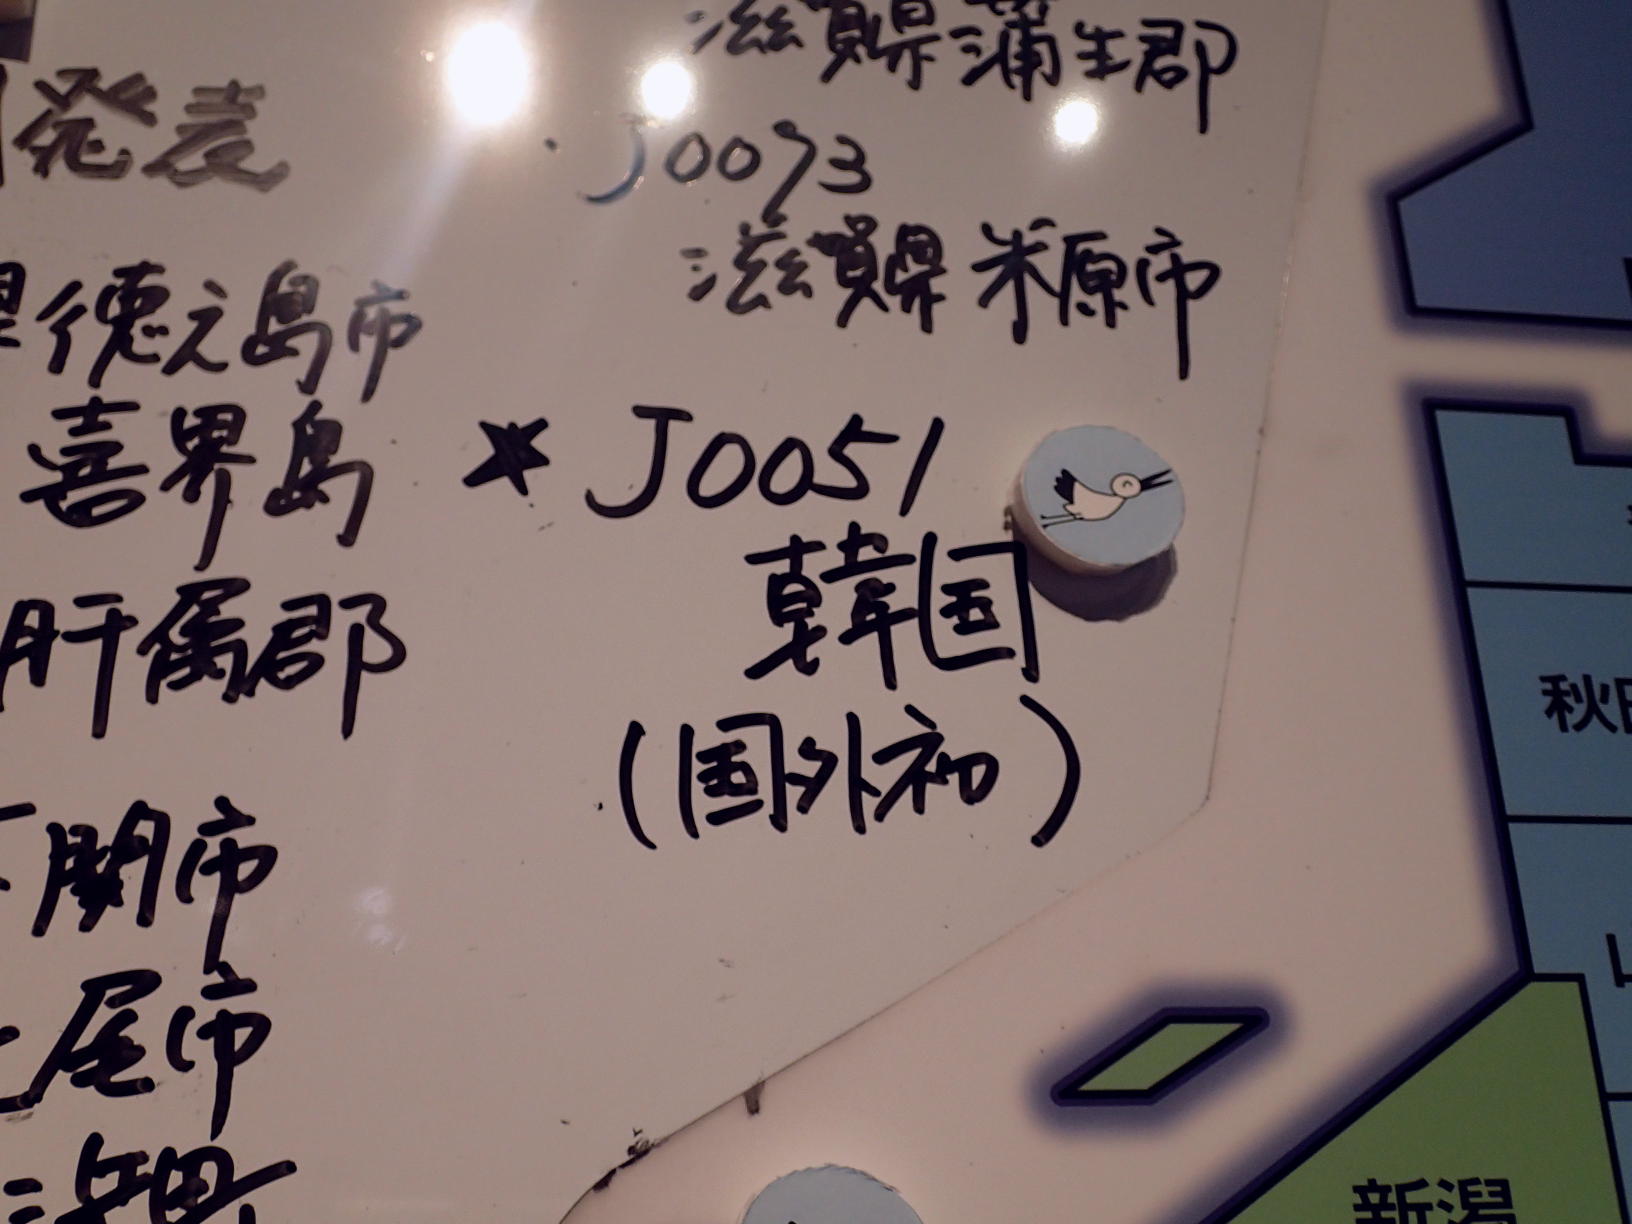 発表
徳之島市
喜界島
肝属郡
関市
尾市
滋賀県蒲生郡
・J0093
滋賀県米原市
★J0051
韓国
(国外初)
秋田
新潟